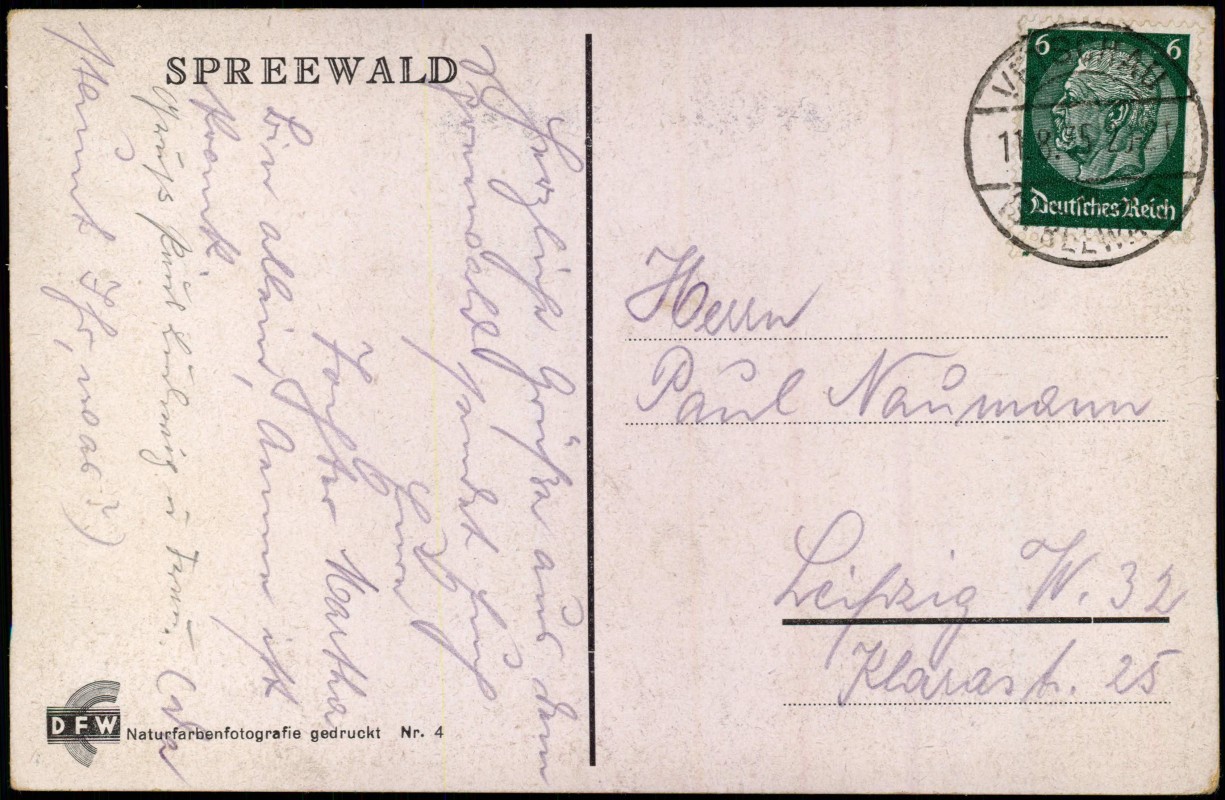 SPREEWALD
Herzliche Grüße aus dem
Spreewald sendet Euch
Eure
Tochter Martha
Bin allein, Anna ist
krank.
Gruß Paul Ludwig u Fam.
staunt Ihr, was?)
DFW
Naturfarbenfotografie gedruckt Nr. 4
6 6
Deutsches Reich
11.8.35
Herrn
Paul Naumann
Leipzig W. 32
Klarastr. 25